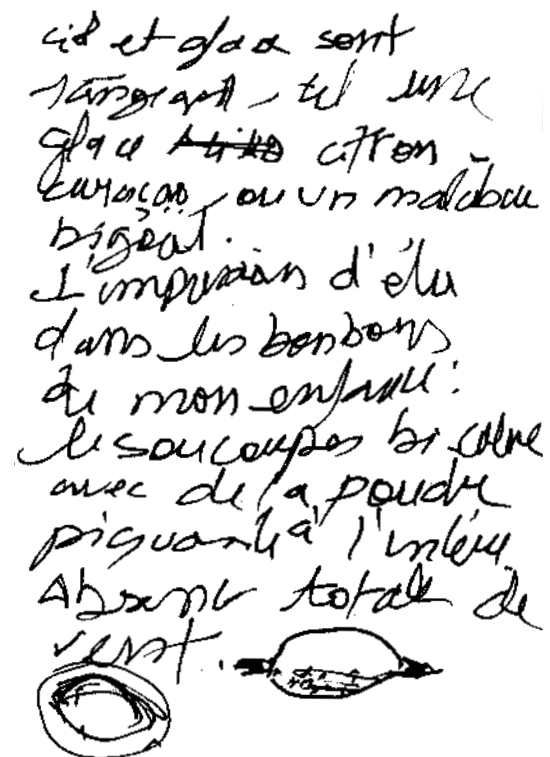 ciel et glace sont
tangeant, tel une
glace citron -
curaçao, ou un malabar
bigoût.
L'impression d'être
dans les bonbons
de mon enfance :
les soucoupes bicolore
avec de la poudre
piquante à l'intérieur
Absence totale de
vent.